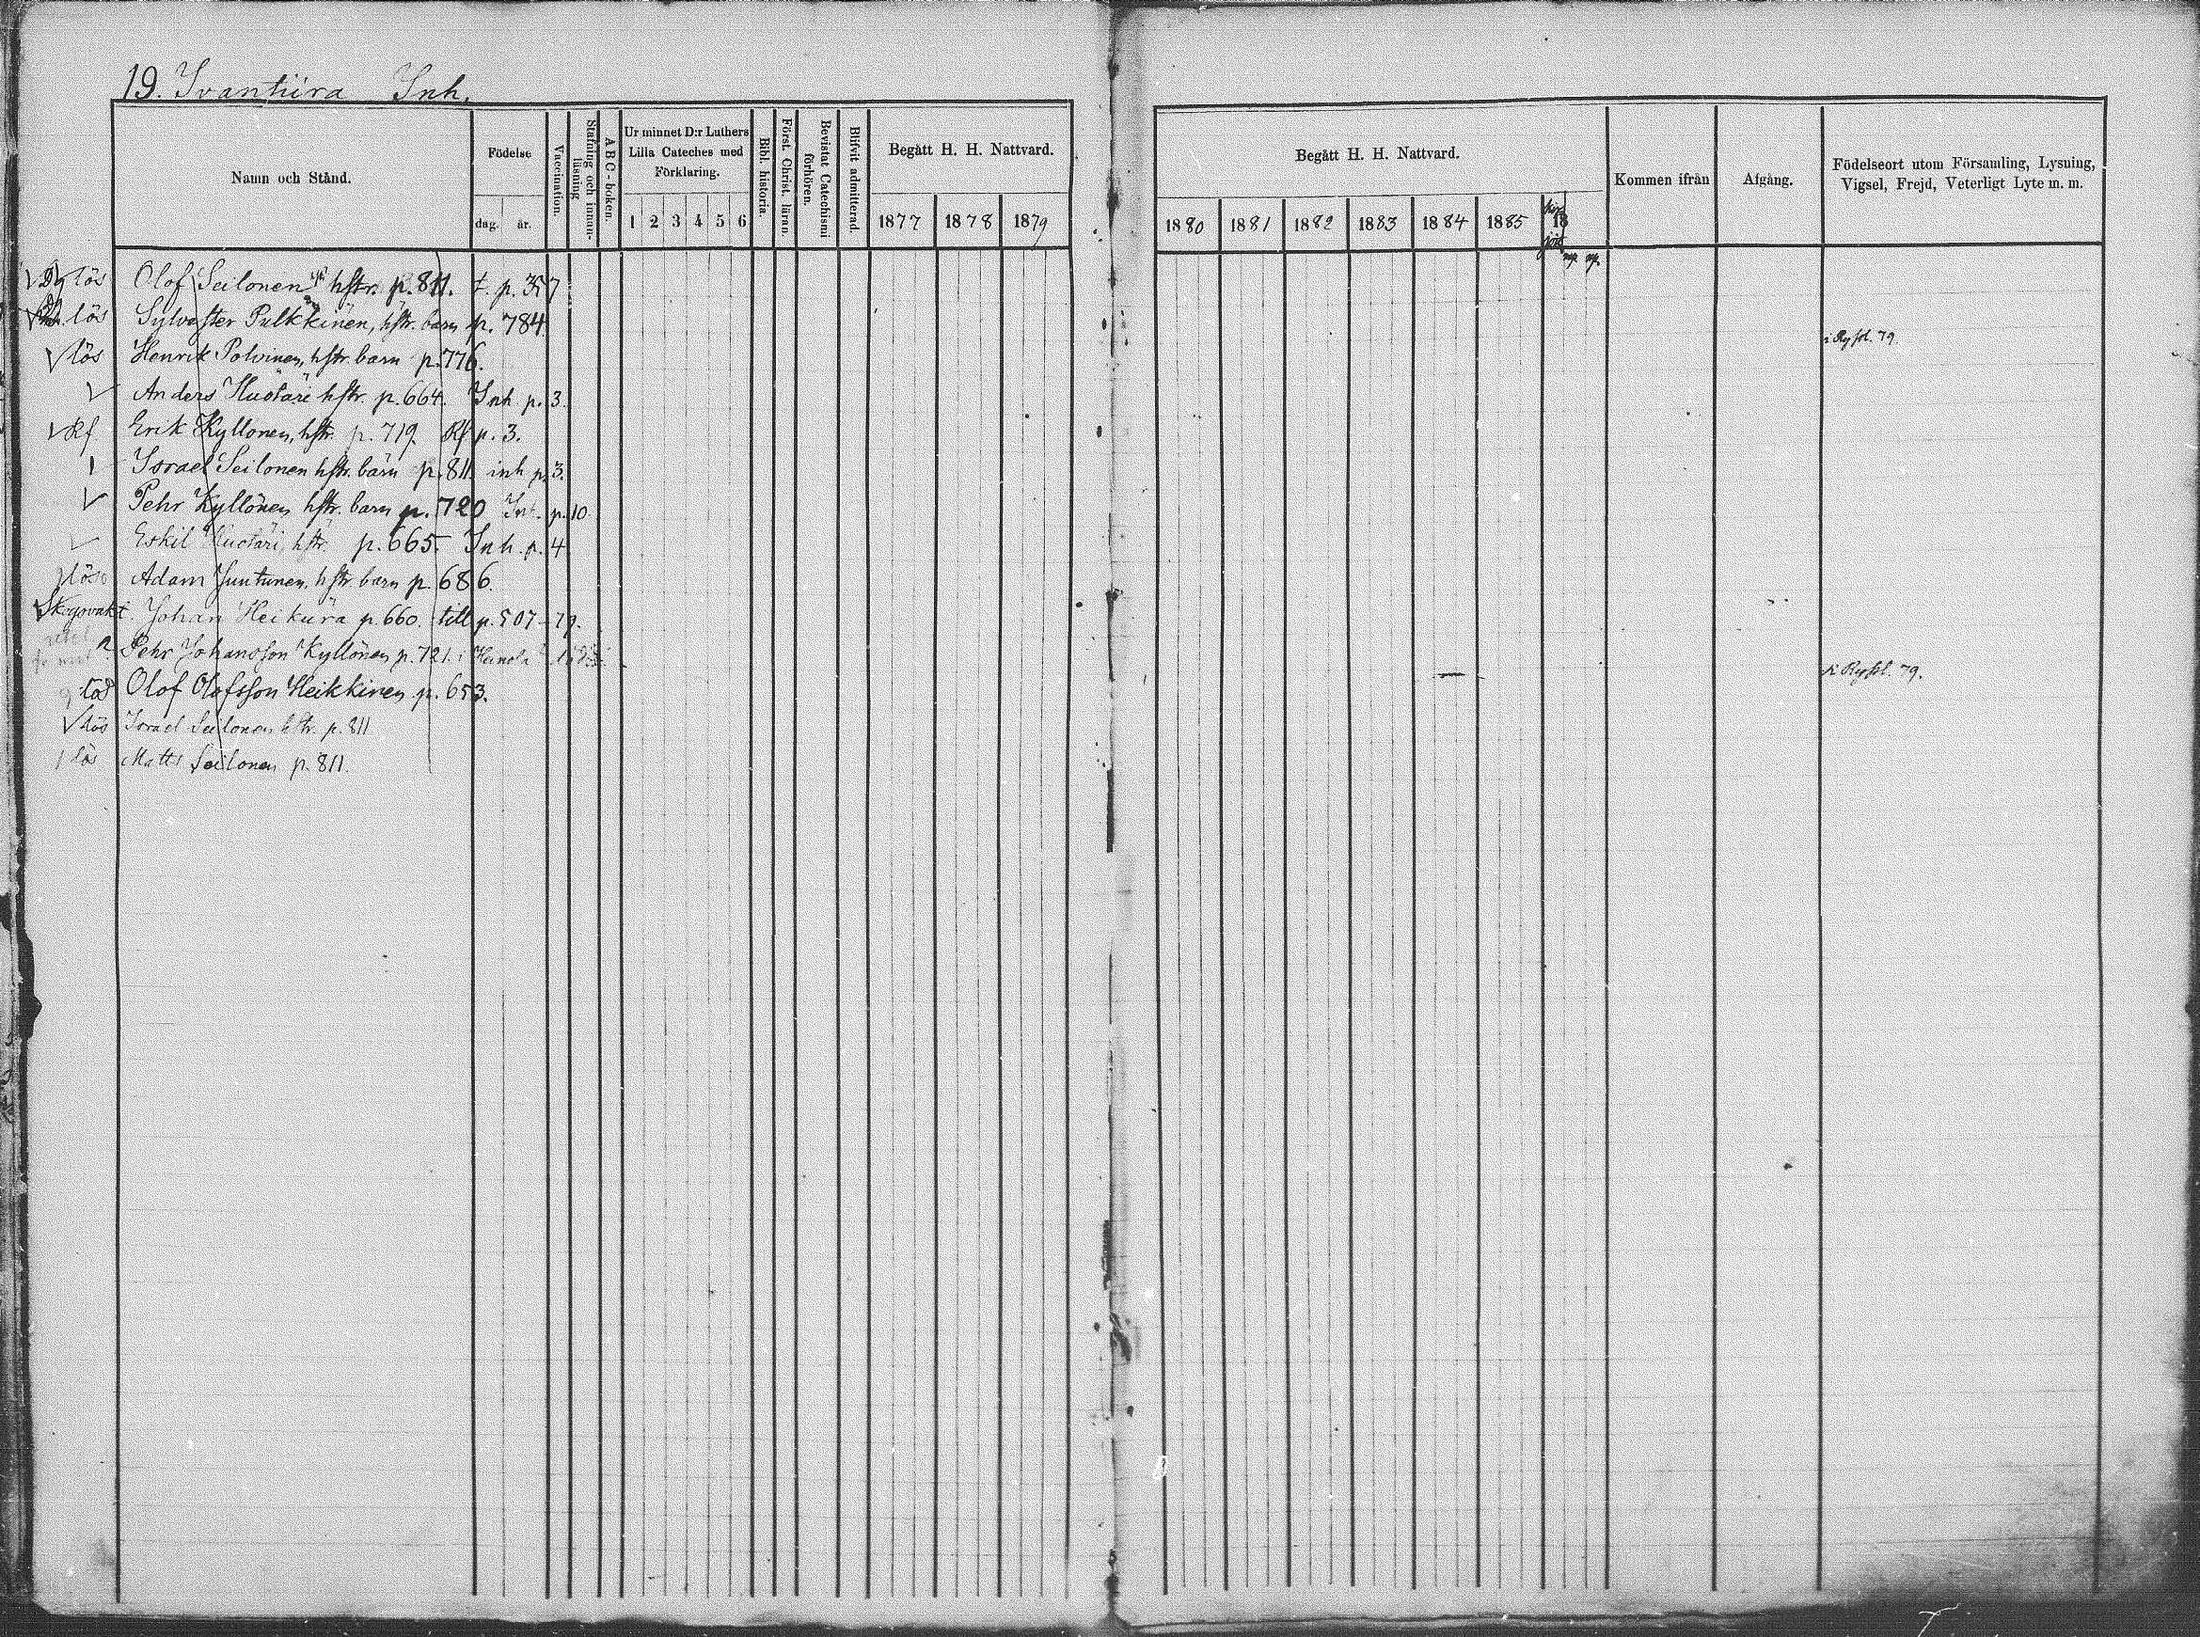 19. Ivantiira Inh.
Namn och Stånd.
Födelse
dag. år.
Vaccination.
Stafning och innan-läsning
A B C - boken.
Ur minnet D:r Luthers Lilla Cateches med Förklaring.
1 2 3 4 5 6
Bibl. historia.
Först. Christ. läran.
Bevistat Catechismi förhören.
Blifvit admitterad.
Begått H. H. Nattvard.
1877 1878 1879
Begått H. H. Nattvard.
1880 1881 1882 1883 1884 1885 18
Kommen ifrån
Afgång.
Födelseort utom Församling, Lysning, Vigsel, Frejd, Veterligt Lyte m. m.
lös Olof Seilonen hstr. p. 811. t. p. 357
lös Sylvester Pulkkinen, hstr. barn p. 784 i Ryssl. 79.
lös Henrik Polvinen, hstr. barn p. 776.
Anders Huotari hstr. p. 664. Inh p. 3.
Rf Erik Kyllönen, hstr. p. 719. Rf p. 3.
Israel Seilonen hstr. barn p. 811. inh p. 3.
Pehr Kyllönen hstr. barn p. 720 Inh. p. 10
Eskil Huotari, hstr. p. 665. Inh. p. 4
lös Adam Juntunen, hstr barn p. 686.
Skogsvakt. Johan Heikura p. 660. till p. 507 - 79.
Pehr Johansson Kyllönen p. 721. i Heinola
lös Olof Olofsson Heikkinen p. 653. i Ryssl. 79.
lös Israel Seilonen hstr. p. 811
lös Matts Seilonen p. 811.